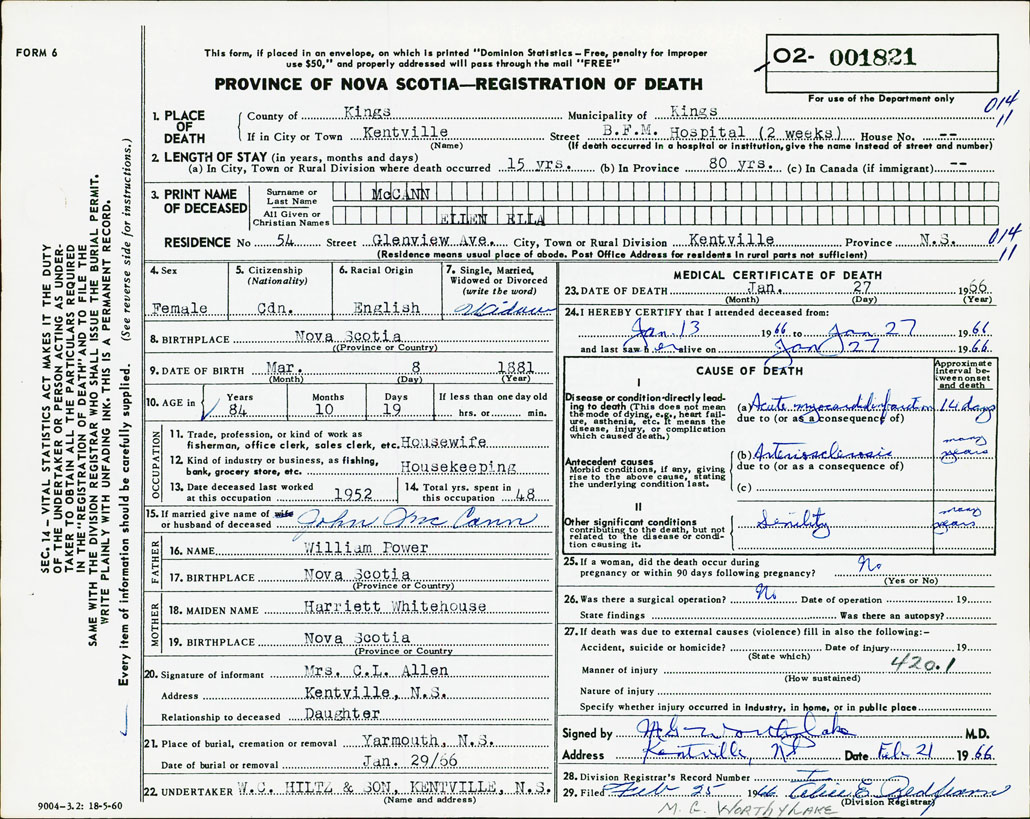 FORM 6
This form, if placed in an envelope, on which is printed "Dominion Statistics – Free, penalty for improper
use $50," and properly addressed will pass through the mail "FREE"
PROVINCE OF NOVA SCOTIA—REGISTRATION OF DEATH
O2- 001821
For use of the Department only
014
11
1. PLACE OF DEATH
County of Kings Municipality of Kings
If in City or Town Kentville Street B.F.M. Hospital (2 weeks) House No. --
(Name) (If death occurred in a hospital or institution, give the name instead of street and number)
2. LENGTH OF STAY (in years, months and days)
(a) In City, Town or Rural Division where death occurred 15 yrs. (b) In Province 80 yrs. (c) In Canada (if immigrant) --
3. PRINT NAME OF DECEASED
Surname or Last Name McCANN
All Given or Christian Names ELLEN ELLA
RESIDENCE No 54 Street Glenview Ave. City, Town or Rural Division Kentville Province N.S.
014
11
(Residence means usual place of abode. Post Office Address for residents in rural parts not sufficient)
4. Sex
Female
5. Citizenship (Nationality)
Cdn.
6. Racial Origin
English
7. Single, Married, Widowed or Divorced (write the word)
Widow
8. BIRTHPLACE Nova Scotia
(Province or Country)
9. DATE OF BIRTH Mar. 8 1881
(Month) (Day) (Year)
10. AGE in
Years 84
Months 10
Days 19
If less than one day old
hrs. or min.
OCCUPATION
11. Trade, profession or kind of work as
fisherman, office clerk, sales clerk, etc. Housewife
12. Kind of industry or business, as fishing,
bank, grocery store, etc. Housekeeping
13. Date deceased last worked
at this occupation 1952
14. Total yrs. spent in
this occupation 48
15. If married give name of wife
or husband of deceased John McCann
FATHER
16. NAME William Power
17. BIRTHPLACE Nova Scotia
(Province or Country)
MOTHER
18. MAIDEN NAME Harriett Whitehouse
19. BIRTHPLACE Nova Scotia
(Province or Country)
20. Signature of informant Mrs. C.L. Allen
Address Kentville, N.S.
Relationship to deceased Daughter
21. Place of burial, cremation or removal Yarmouth, N.S.
Date of burial or removal Jan. 29/66
22. UNDERTAKER W.C. HILTZ & SON, KENTVILLE, N.S.
(Name and address)
MEDICAL CERTIFICATE OF DEATH
23. DATE OF DEATH Jan. 27 1966
(Month) (Day) (Year)
24. I HEREBY CERTIFY that I attended deceased from:
Jan 13 1966 to Jan 27 1966
and last saw her alive on Jan 27 1966.
CAUSE OF DEATH
Approximate interval between onset and death
I
Disease or condition directly leading to death (This does not mean
the mode of dying, e.g., heart failure, asthenia, etc. It means the
disease, injury, or complication
which caused death.)
(a) Acute myocardial infarction 14 days
due to (or as a consequence of)
Antecedent causes
Morbid conditions, if any, giving
rise to the above cause, stating
the underlying condition last.
(b) Arteriosclerosis many years
due to (or as a consequence of)
(c)
II
Other significant conditions
contributing to the death, but not
related to the disease or condition
causing it.
Senility many years
25. If a woman, did the death occur during
pregnancy or within 90 days following pregnancy? No
(Yes or No)
26. Was there a surgical operation? No Date of operation 19
State findings Was there an autopsy?
27. If death was due to external causes (violence) fill in also the following:–
Accident, suicide or homicide? Date of injury 19
(State which)
Manner of injury 420.1
(How sustained)
Nature of injury
Specify whether injury occurred in industry, in home, or in public place
Signed by M G Worthylake M.D.
Address Kentville, NS Date Feb 21 1966
28. Division Registrar's Record Number
29. Filed Feb 25 1966
(Division Registrar)
M. G. WORTHYLAKE
9004–3.2: 18-5-60
SEC. 14 – VITAL STATISTICS ACT MAKES IT THE DUTY
OF THE UNDERTAKER OR PERSON ACTING AS UNDERTAKER
TO OBTAIN ALL THE PARTICULARS REQUIRED
IN THE "REGISTRATION OF DEATH" AND TO FILE THE
SAME WITH THE DIVISION REGISTRAR WHO SHALL ISSUE THE BURIAL PERMIT.
WRITE PLAINLY WITH UNFADING INK. THIS IS A PERMANENT RECORD.
Every item of information should be carefully supplied. (See reverse side for instructions.)